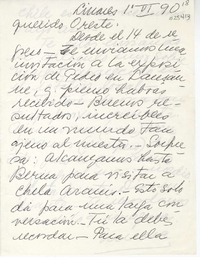 Linares 1º VI 90
querido Oreste.
Desde el 14 de re
greso — Te enviamos una
invitación a la exposi
ción de Pedro en
g. pienso habrás
recibido — Buenos re
sultados, increíbles
en un mundo tan
ajeno al nuestro. — Sorpre
sa: Alcanzamos hasta
Berna para visitar a
Chela Aranis. — Esto solo
dá para una larga con
versación — Tú la debes
recordar — Para ella